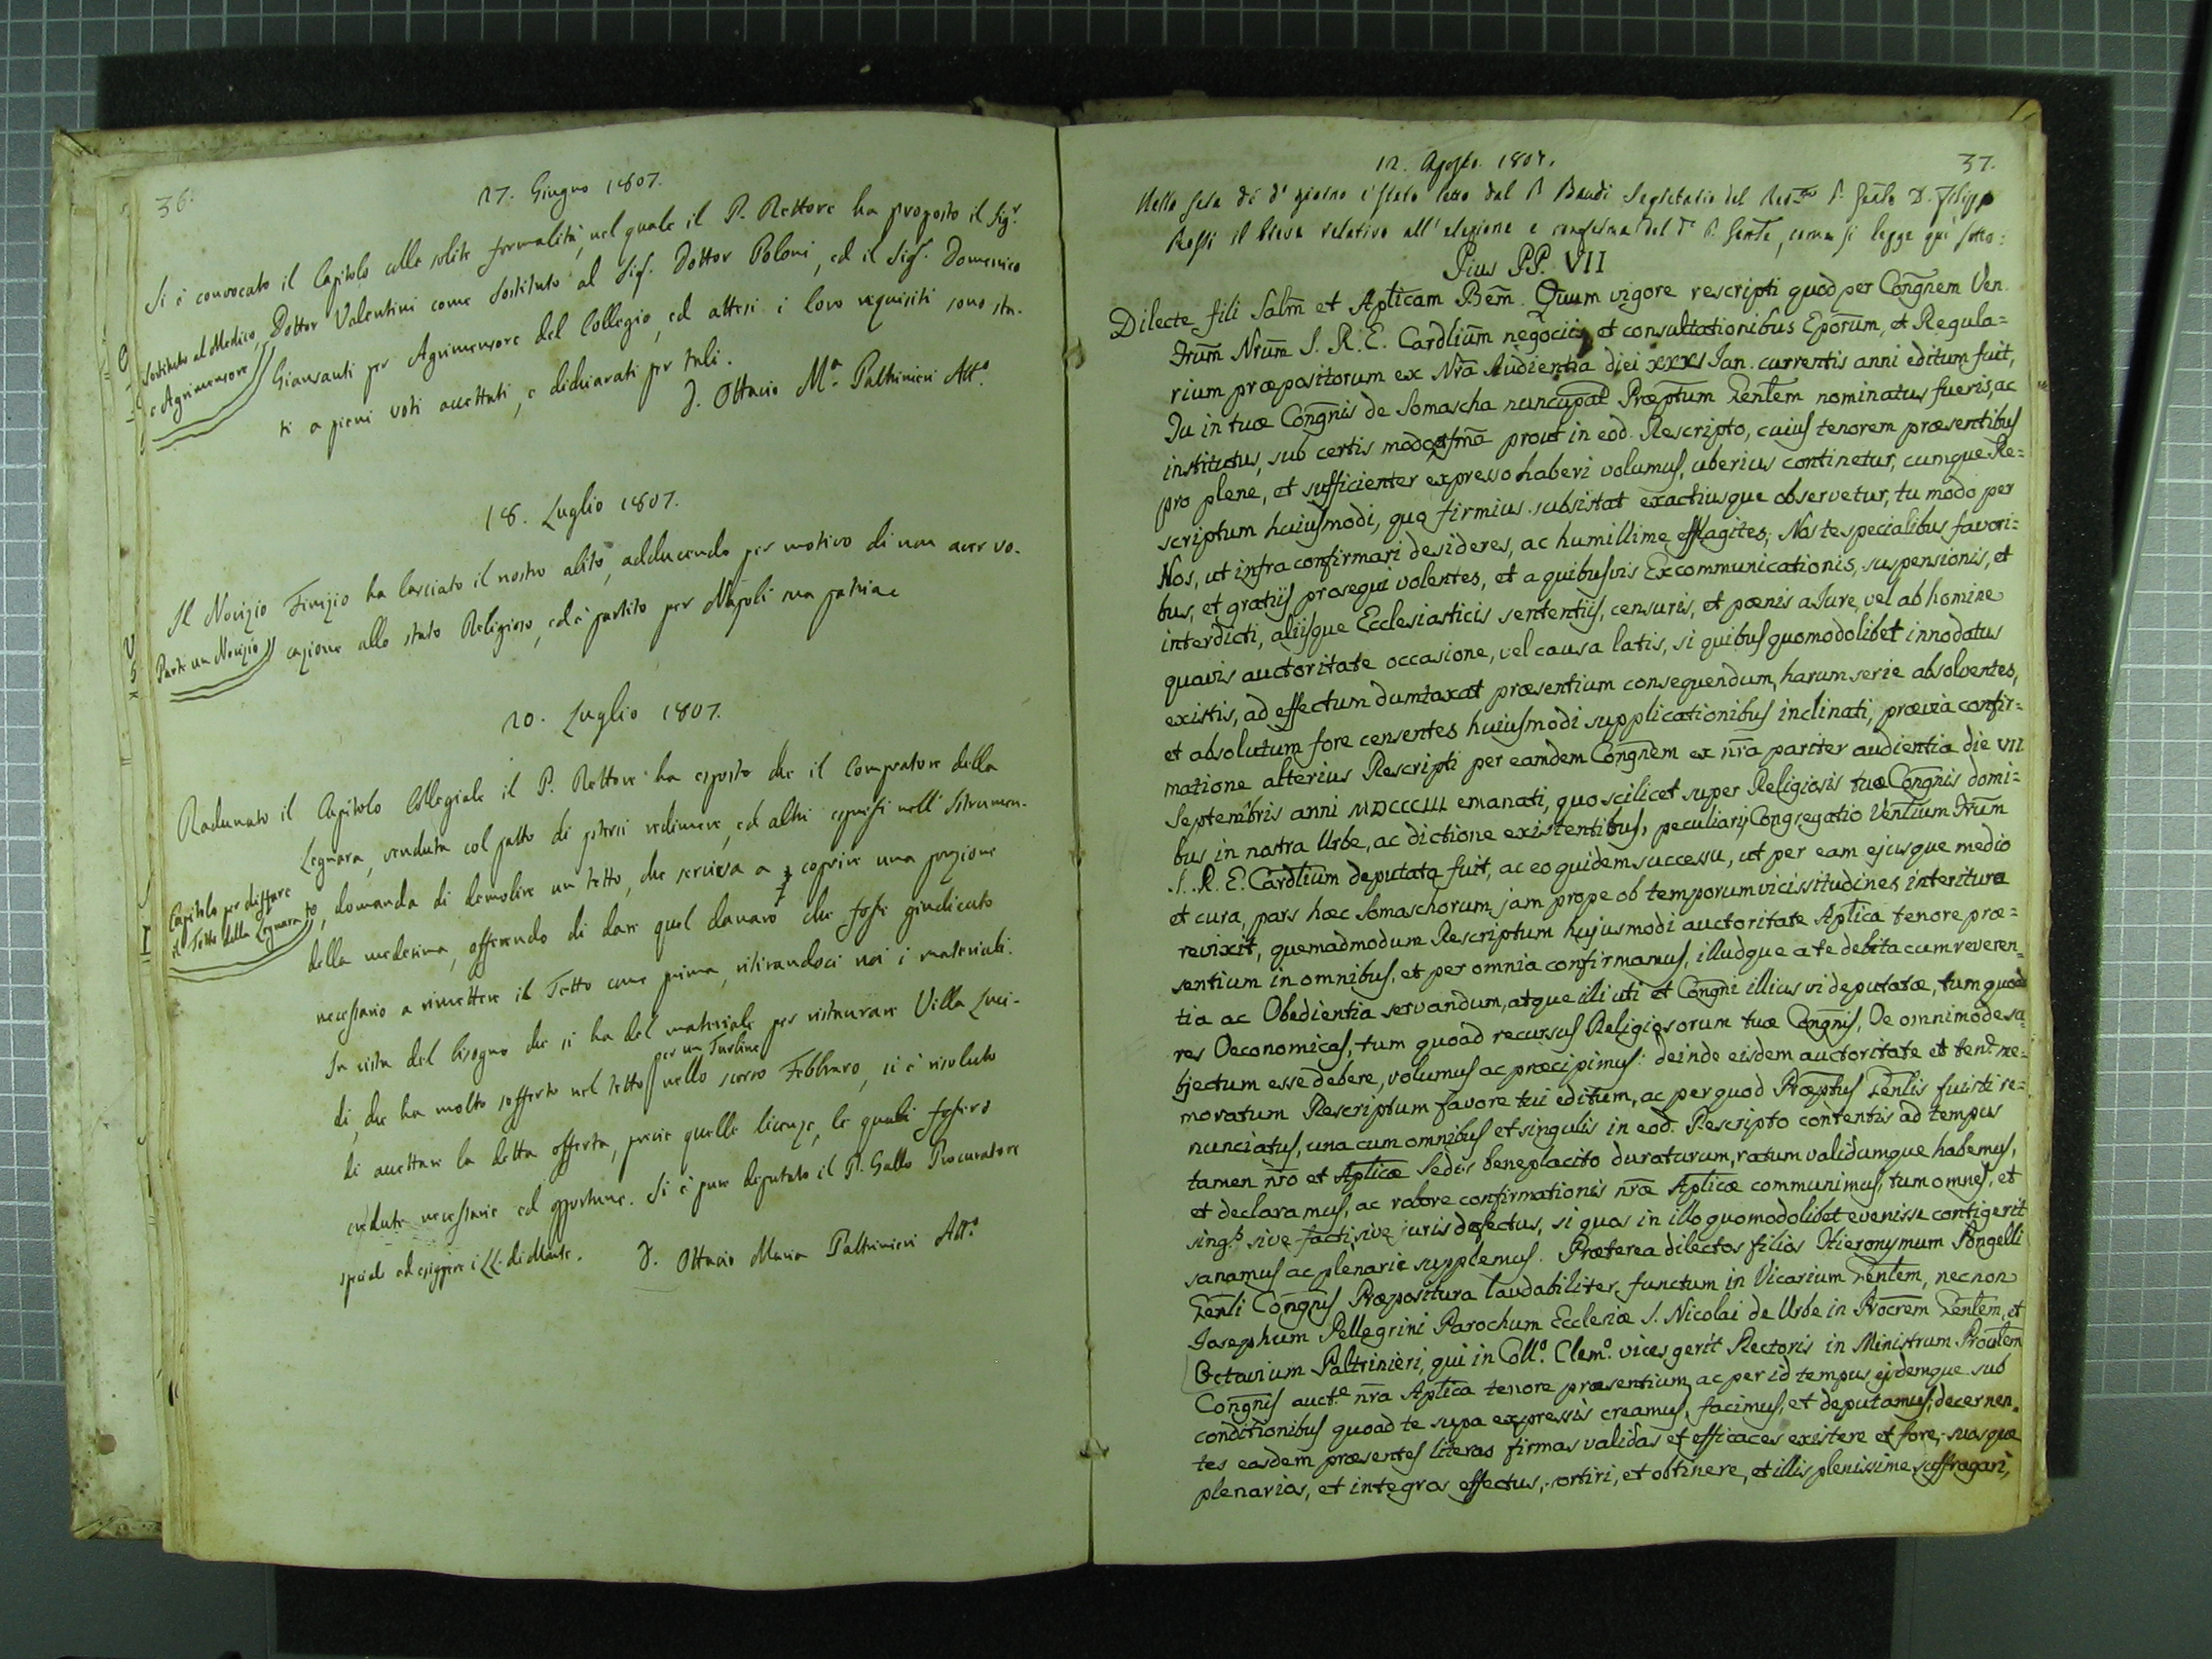 36.
27. Giugno 1807.
Si è convocato il Capitolo colle solite formalità, nel quale il P. Rettore ha proposto il Sigr.
Sostituto al Medico, e Agrimensore
Dottor Valentini come Sostituto al Sig. Dottor Poloni, ed il Sig. Domenico
Giansanti per Agrimensore del Collegio, ed attesi i loro requisiti sono sta-
ti a pieni voti accettati, e dichiarati per tali.
D. Ottavio Ma. Paltrinieri Atto.
18. Luglio 1807.
Il Novizio Finizio ha lasciato il nostro abito, adducendo per motivo di non aver vo-
Parte un Novizio
cazione allo stato Religioso, ed è partito per Napoli sua patria
20. Luglio 1807.
Radunato il Capitolo Collegiale il P. Rettore ha esposto che il Compratore della
Legnara, venduta col patto di potersi redimere, ed altri espressi nell' Istrumen-
Capitolo per disfare
il Tetto della Legnara
to, domanda di demolire un tetto, che serviva a coprire una porzione
della medesima, offerendo di dare quel danaro che fosse giudicato
necessario a rimettere il Tetto come prima, ritirandoci noi i materiali.
In vista del bisogno che si ha del materiale per ristaurare Villa Luci-
di, che ha molto sofferto nel tetto per un Turbine nello scorso Febbraro, si è risoluto
di accettare la detta offerta, previe quelle licenze, le quali fossero
credute necessarie ed opportune. Si è pure deputato il P. Gallo Procuratore
speciale ad esiggere i LL. di Monte. D. Ottavio Maria Paltrinieri Atto.
37.
12. Agosto 1807.
Nella sera di do giorno è stato letto dal P. Baudi Segretario del Revmo P. Gnale D. Filippo
Rossi il breve relativo all' elezione e conferma del do P. Gente, come si legge qui sotto:
Pius PP. VII
Dilecte fili Salm̄ et Aplicam Bēm. Quum vigore rescripti quod per Congnem Ven.
Frum Nrum S. R. E. Cardlium negociis et consultationibus Eporum, et Regula=
rium præpositorum ex Nra Audientia diei XXXI Jan. currentis anni editum fuit,
Tu in tuæ Congnis de Somascha nuncupat Præptum Gentem nominatus fueris, ac
institutus, sub certis modo et fma prout in eod. Rescripto, cuius tenorem præsentibus
pro plene, et sufficienter expresso haberi volumus, uberius continetur, cumque Re=
scriptum huiusmodi, quo firmius subsistat exactiusque observetur, tu modo per
Nos, ut infra confirmari desideres, ac humillime efflagites; Nos te specialibus favori=
bus, et gratiis prosequi volentes, et a quibusvis Excommunicationis, suspensionis, et
interdicti, aliisque Ecclesiasticis sententiis, censuris, et pœnis a Jure, vel ab homine
quavis auctoritate occasione, vel causa latis, si quibus quomodolibet innodatus
existis, ad effectum dumtaxat præsentium consequendum, harum serie absolventes,
et absolutum fore censentes huiusmodi supplicationibus inclinati, prævia confir=
matione alterius Rescripti per eamdem Congnem ex nra pariter audientia die VII
Septembris anni MDCCCIII emanati, quo scilicet super Religiosis tuæ Congnis domi=
bus in nostra Urbe, ac dictione existentibus, peculiaris Congregatio Ventium Frum
S. R. E. Cardlium deputata fuit, ac eo quidem successu, ut per eam ejusque medio
et cura, pars hæc Somaschorum jam prope ob temporum vicissitudines interitura
revixit, quemadmodum Rescriptum hujusmodi auctoritate Aplica tenore præ=
sentium in omnibus, et per omnia confirmamus, illudque a te debita cum reveren=
tia ac Obedientia servandum, atque illi uti et Congni illius vi deputatæ, tum quoad
res Oeconomicas, tum quoad recursus Religiosorum tuæ Congnis, Te omnimode su=
bjectum esse debere, volumus ac præcipimus: deinde eisdem auctoritate et tene me=
moratum Rescriptum favore tui editum, ac per quod Præptus Genlis fuisti re=
nunciatus, una cum omnibus et singulis in eod. Rescripto contentis ad tempus
tamen nro et Aplicæ Sedis beneplacito duraturum, ratum validumque habemus,
et declaramus, ac robore confirmationis nræ Aplicæ communimus, tum omnes, et
sings sive facti, sive juris defectus, si quos in illo quomodolibet evenisse contigerit
sanamus ac plenarie supplemus. Præterea dilectos filios Hieronymum Pongelli
Genli Congnis Præpositura laudabiliter functum in Vicarium Genlem, necnon
Josephum Pellegrini Parochum Ecclesiæ S. Nicolai de Urbe in Procrem Genlem, et
Octavium Paltrinieri, qui in Collo. Clemo. vices gerit Rectoris in Ministrum Provlem
Congnis aucte nra Aplica tenore præsentium, ac per id tempus ejsdemque sub
conditionibus quoad te supa expressis creamus, facimus, et deputamus, decernen.
tes easdem præsentes literas firmas validas et efficaces existere et fore, suosque
plenarios, et integros effectus, sortiri, et obtinere, et illis plenissime suffragari,